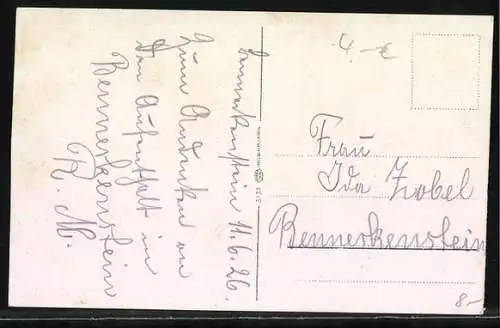 Bennekenstein 11.6.26.
Zum Andenken an
den Aufenthalt in
Bennerkenstein
R. M.
4,-€
Frau
Ida Zobel
Bennerkenstein
8-